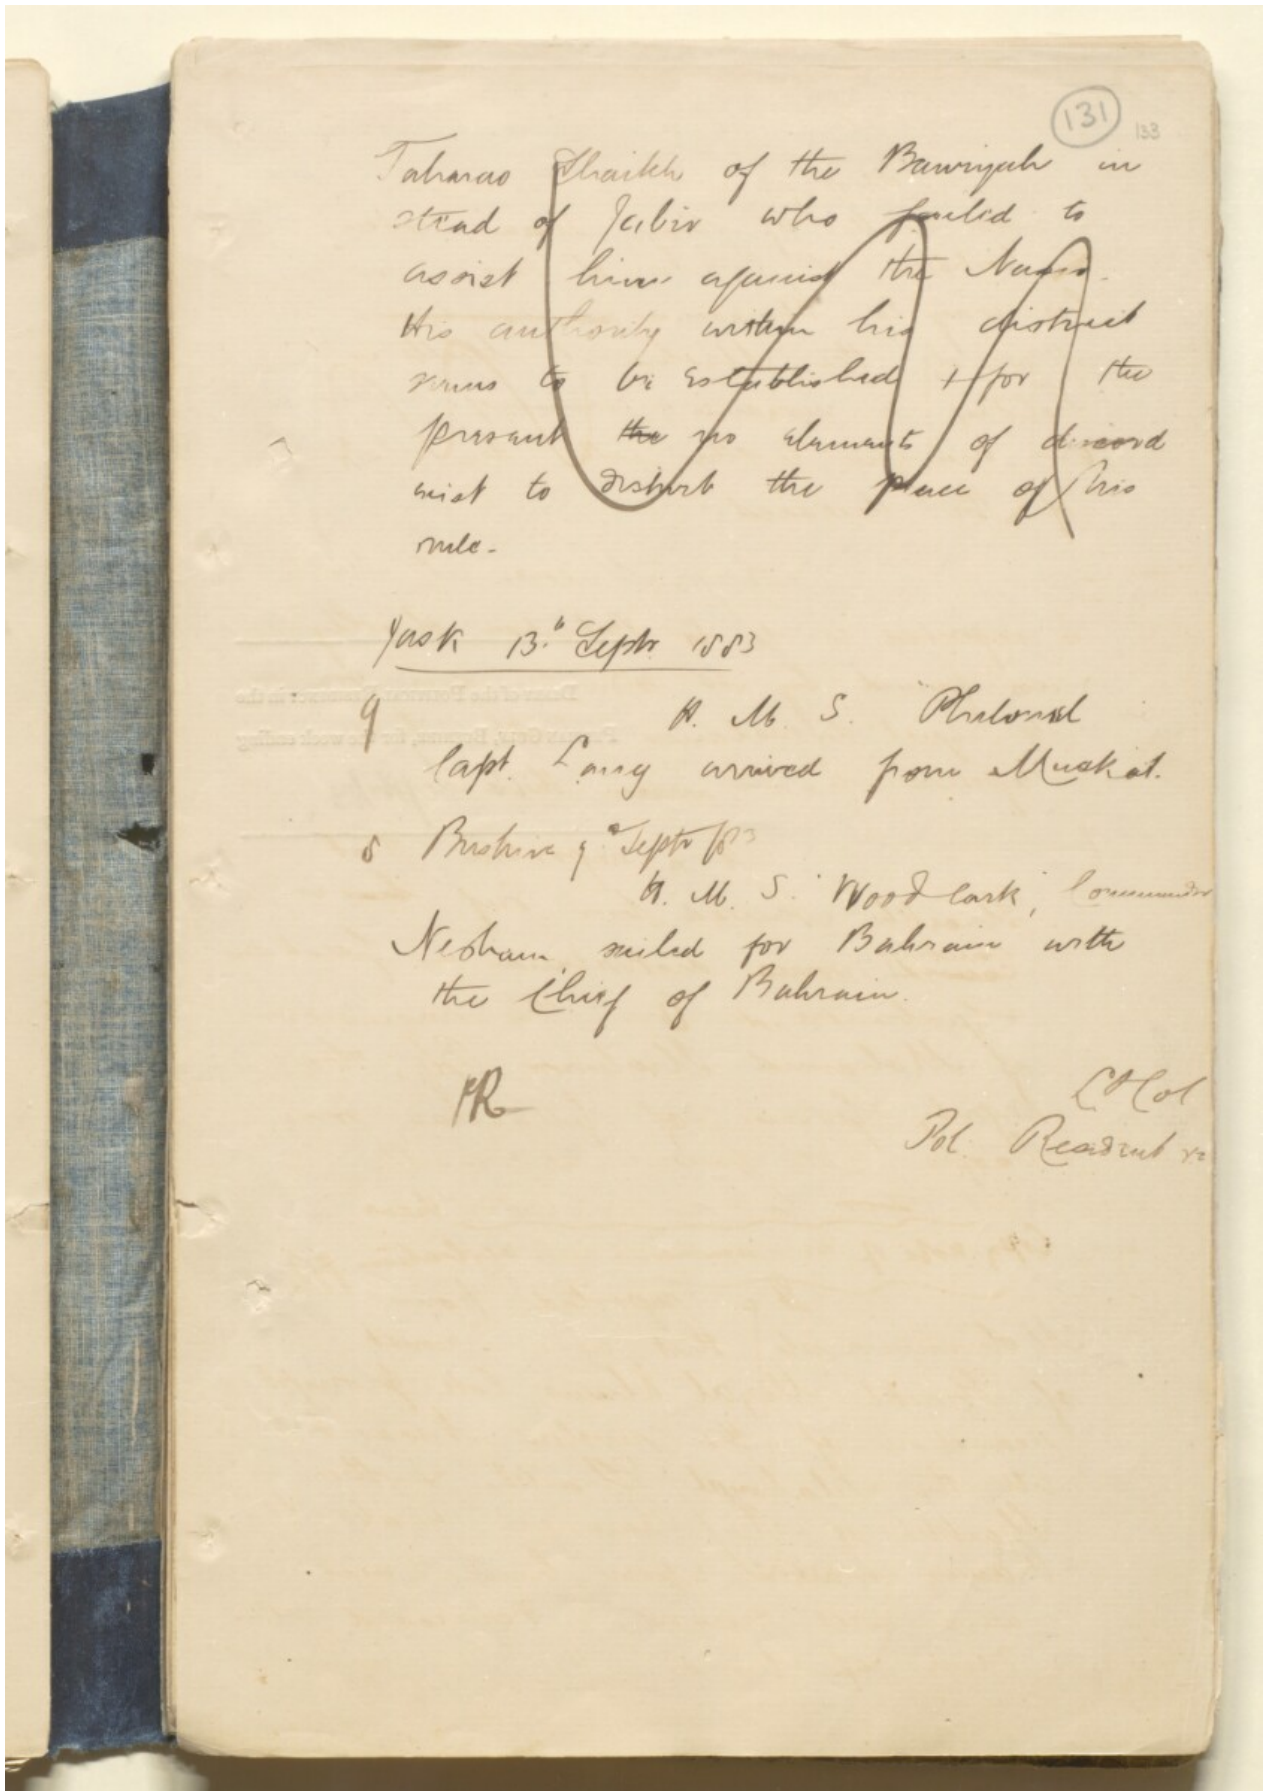 131
133
Shaikh of the Bawiyah in
stead of Jabir who failed to
assist him against the
His authority within his district
seems to be established & for the
present the no elements of discord
exist to disturb the peace of his
rule.
Jask 13th Septr 1883
9 H. M. S. Philomel
Capt. Lang arrived from Muskat.
8 Bushire 9 Septr 83
H. M. S. Woodlark, Commander
Nesham, sailed for Bahrain with
the Chief of Bahrain.
Lt Col
Pol. Resident